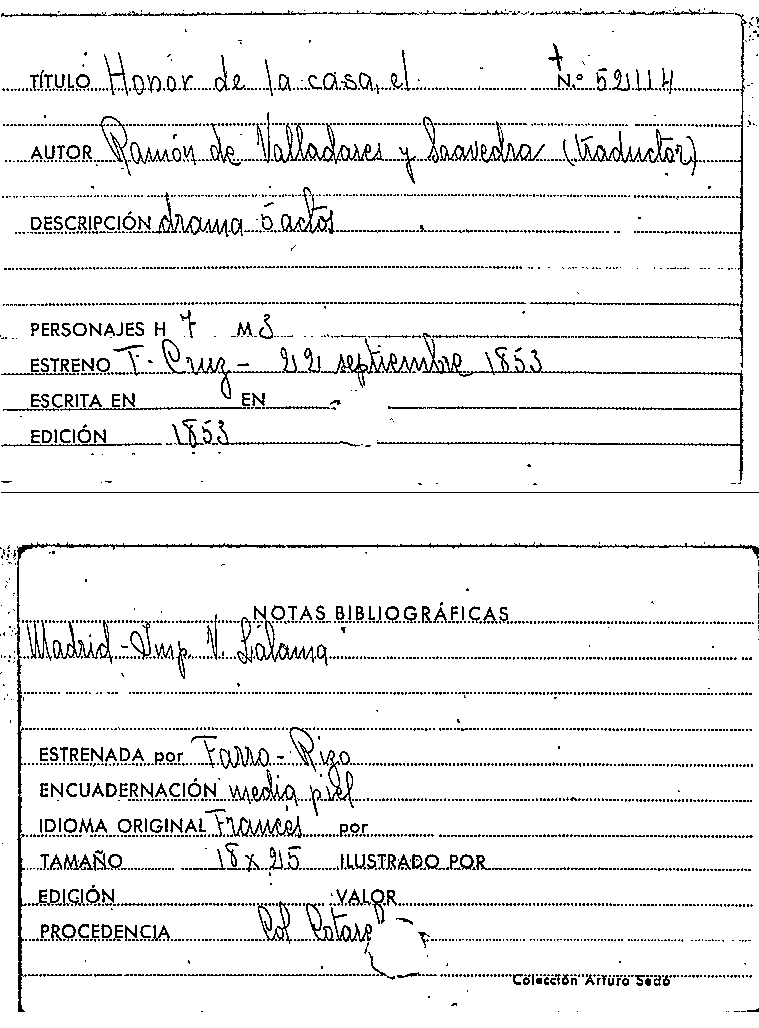 TÍTULO Honor de la casa, el N.º 52114
AUTOR Ramón de Valladares y Saavedra (traductor)
DESCRIPCIÓN drama 5 actos
PERSONAJES H 7 M 3
ESTRENO T. Cruz - 22 septiembre 1853
ESCRITA EN EN
EDICIÓN 1853
NOTAS BIBLIOGRÁFICAS
Madrid - Imp. V. Lalama
ESTRENADA por Farro - Rizo
ENCUADERNACIÓN media piel
IDIOMA ORIGINAL Francés por
TAMAÑO 18 x 25 ILUSTRADO POR
EDICIÓN VALOR
PROCEDENCIA Col
Colección Arturo Sedó